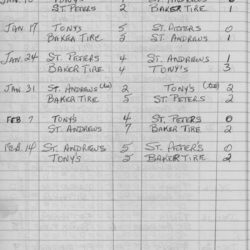 ST. PETERS 2 BAKER TIRE 1
JAN. 17 TONY'S 5 ST. PETERS 0
BAKER TIRE 5 ST. ANDREWS 1
JAN. 24 ST. PETERS 4 ST. ANDREWS 1
BAKER TIRE 4 TONY'S 3
JAN. 31 ST. ANDREWS (TIE) 2 TONY'S (TIE) 2
BAKER TIRE 5 ST PETERS 2
FEB 7 TONY'S 4 ST. PETERS 0
ST. ANDREWS 7 BAKER TIRE 2
FEB. 14 ST. ANDREWS 5 ST. PETER'S 0
TONY'S 5 BAKER TIRE 2